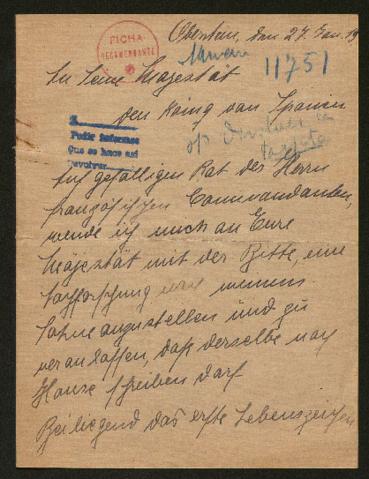 FICHA
RECOMENDANTE
Oberstein, den 27. Jan. 19
11751
An Seine Majestät
den König von Spanien
Pedir informes
Que se hace así
Devolver
Auf gefälligen Rat des Herrn
französischen Commandanten,
wende ich mich an Eure
Majestät mit der Bitte, eine
Nachforschung nach meinem
Sohne anzustellen und zu
veranlassen, daß derselbe nach
Hause schreiben darf
Beiliegend das erste Lebenszeichen